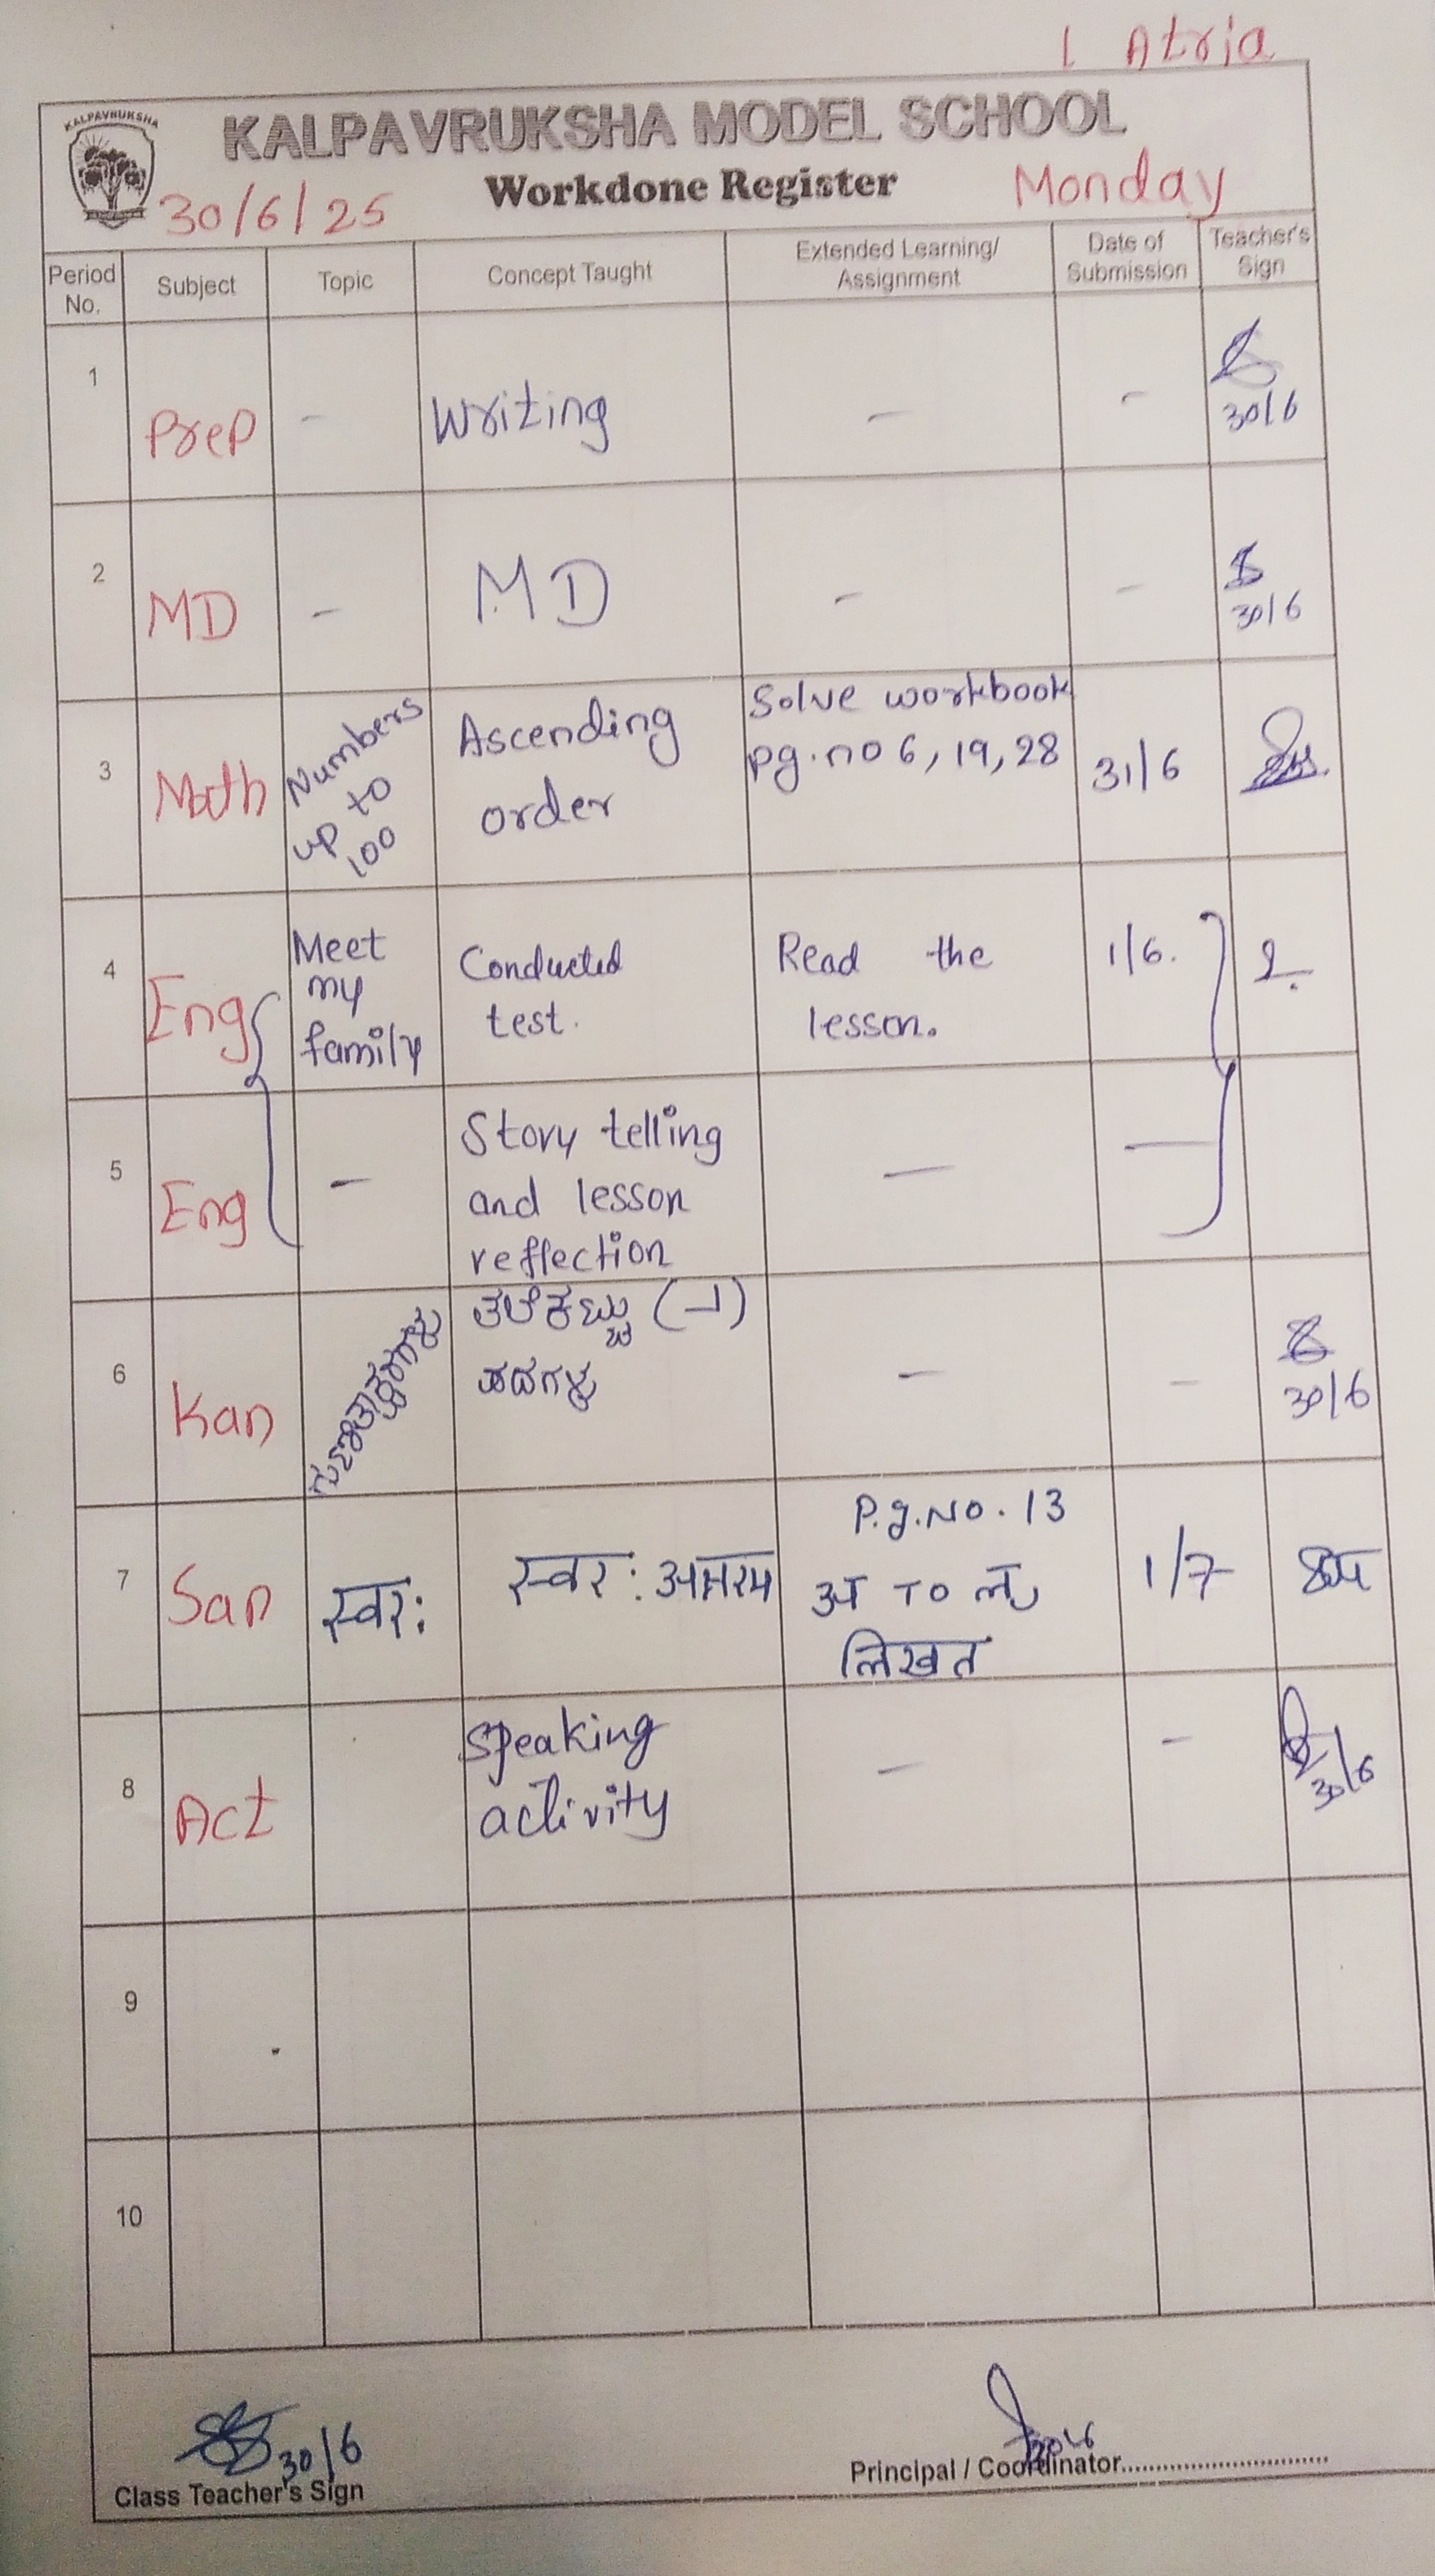 1 Atria
KALPAVRUKSHA
KALPAVRUKSHA MODEL SCHOOL
30/6/25 Workdone Register Monday
Period No. Subject Topic Concept Taught Extended Learning/ Assignment Date of Submission Teacher's Sign
1 Prep - Writing - - 30/6
2 MD - MD - - 30/6
3 Math Numbers up to 100 Ascending order Solve workbook pg.no 6, 19, 28 31/6
4 Eng Meet my family Conducted test. Read the lesson. 1/6.
5 Eng - Story telling and lesson reflection - -
6 Kan ಗುಣಿತಾಕ್ಷರಗಳು ತಲೆಕಟ್ಟು ಪದಗಳು - - 30/6
7 San स्वर: स्वर: P.g.No. 13 अ TO लृ लिखत 1/7
8 Act Speaking activity - - 30/6
9
10
30/6
Class Teacher's Sign
30/6
Principal / Coordinator